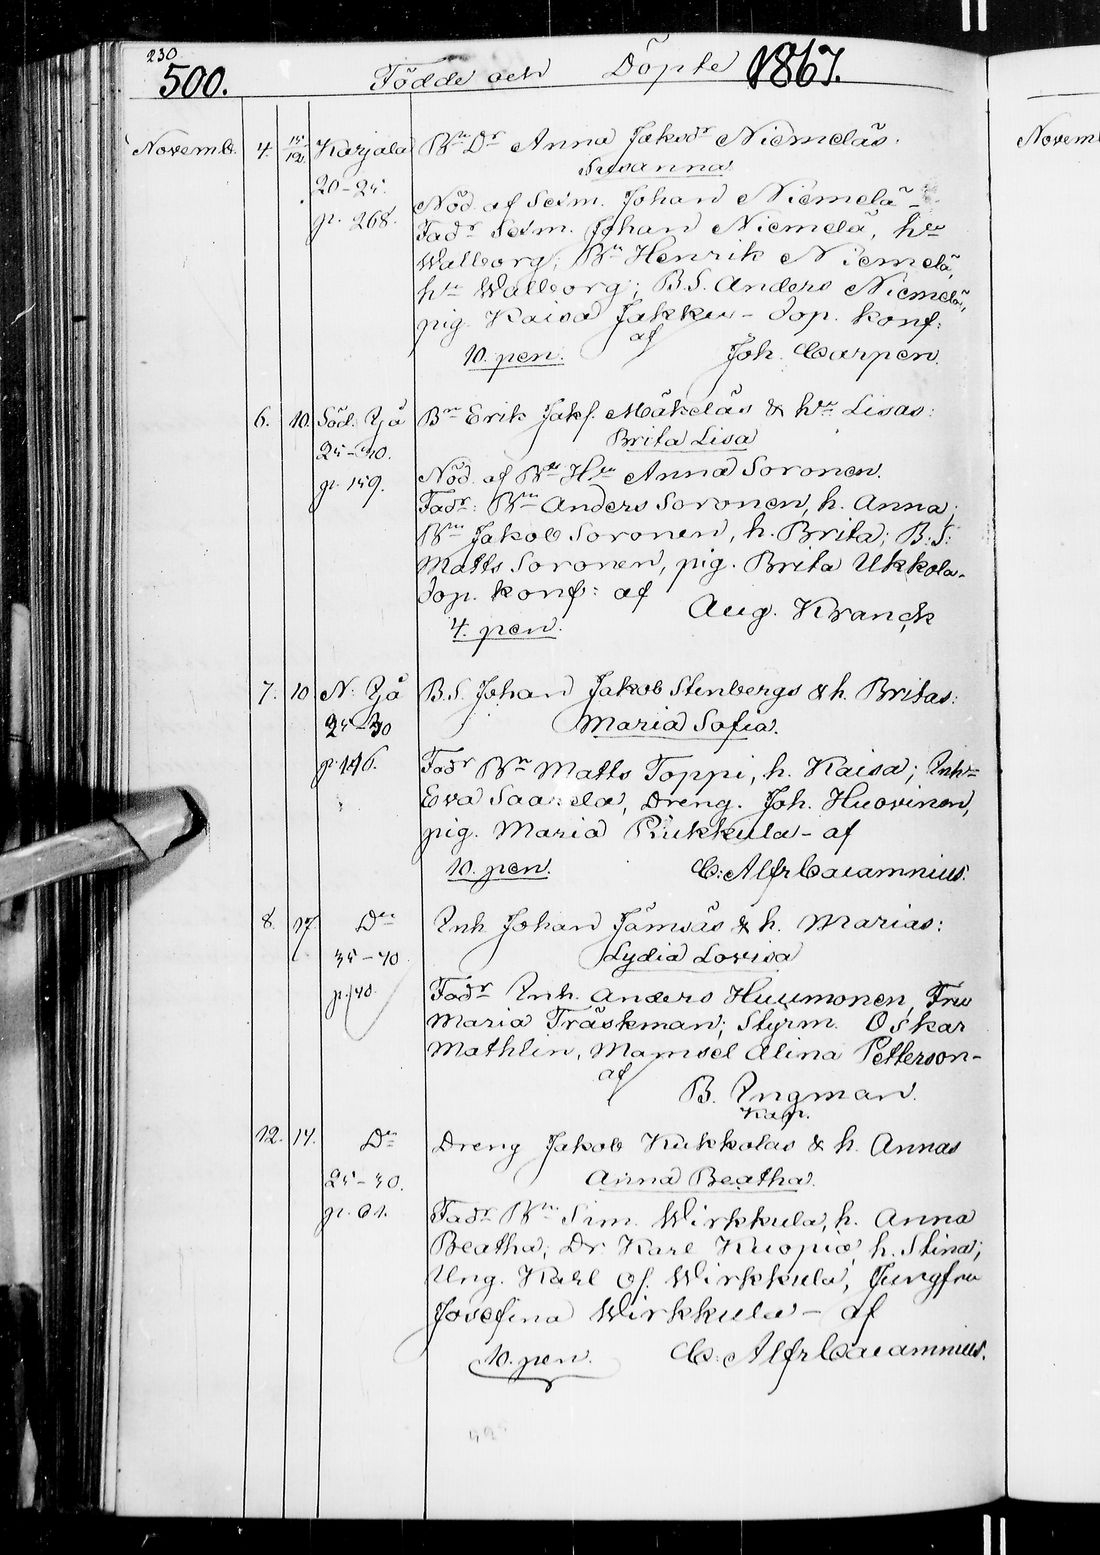 230
500. Födde och Döpte 1867.
Novemb. 4. 15/12. Karjala Bn Dr Anna Jakodr Niemeläs.
Susanna
20-25.
Nöd. af Sexm. Johan Niemelä-
p. 268. Fadr Sexm. Johan Niemelä, hru
Walborg; Bn Henrik Niemelä,
h. Walborg; B.S. Anders Niemelä,
pig. Kaisa Jakku - Dop. konf:
af
10. pen. Joh. Carpen.
6. 10. Söd. Yjä Bn Erik Jakf. Mäkeläs & hru Lisas:
Brita Lisa
25-30.
Nöd. af Bn Hru Anna Soronen.
p. 159.
Fadr: Bn Anders Soronen, h. Anna;
Bn Jakob Soronen, h. Brita; B.S:
Matts Soronen, pig. Brita Ukkola-
Dop. konf: af
Aug. Kranck
4. pen.
7. 10 N. Yjä B.S. Johan Jakob Stenbergs & h. Britas:
Maria Sofia.
25-30
p. 146. Fadr Bn Matts Toppi, h. Kaisa; Inh.
Eva Saarela, Dreng. Joh. Huovinen,
pig. Maria Kukkula - af
10. pen. C: Alfr Cajamnius.
8. 17. Do Inh. Johan Jämsäs & h. Marias:
Lydia Lovisa
35-40
p. 140. Fadr Inh. Anders Huumonen, Fru
Maria Träskman; Styrm. Oskar
Mathlin, Mamsel Alina Petterson-
af
B. Ingman.
Kap.
12. 14. Do Dreng Jakob Kukkolas & h. Annas
Anna Beatha.
25-30.
p. 61. Fadr Bn Sim. Wirkkula, h. Anna
Beatha; Dr. Karl Kuopio, h. Stina;
Ung. Karl Of. Wirkkula, Jungfru
Josefina Wirkkula - af
10. pen. C: Alfr Cajamnius.
Novemb